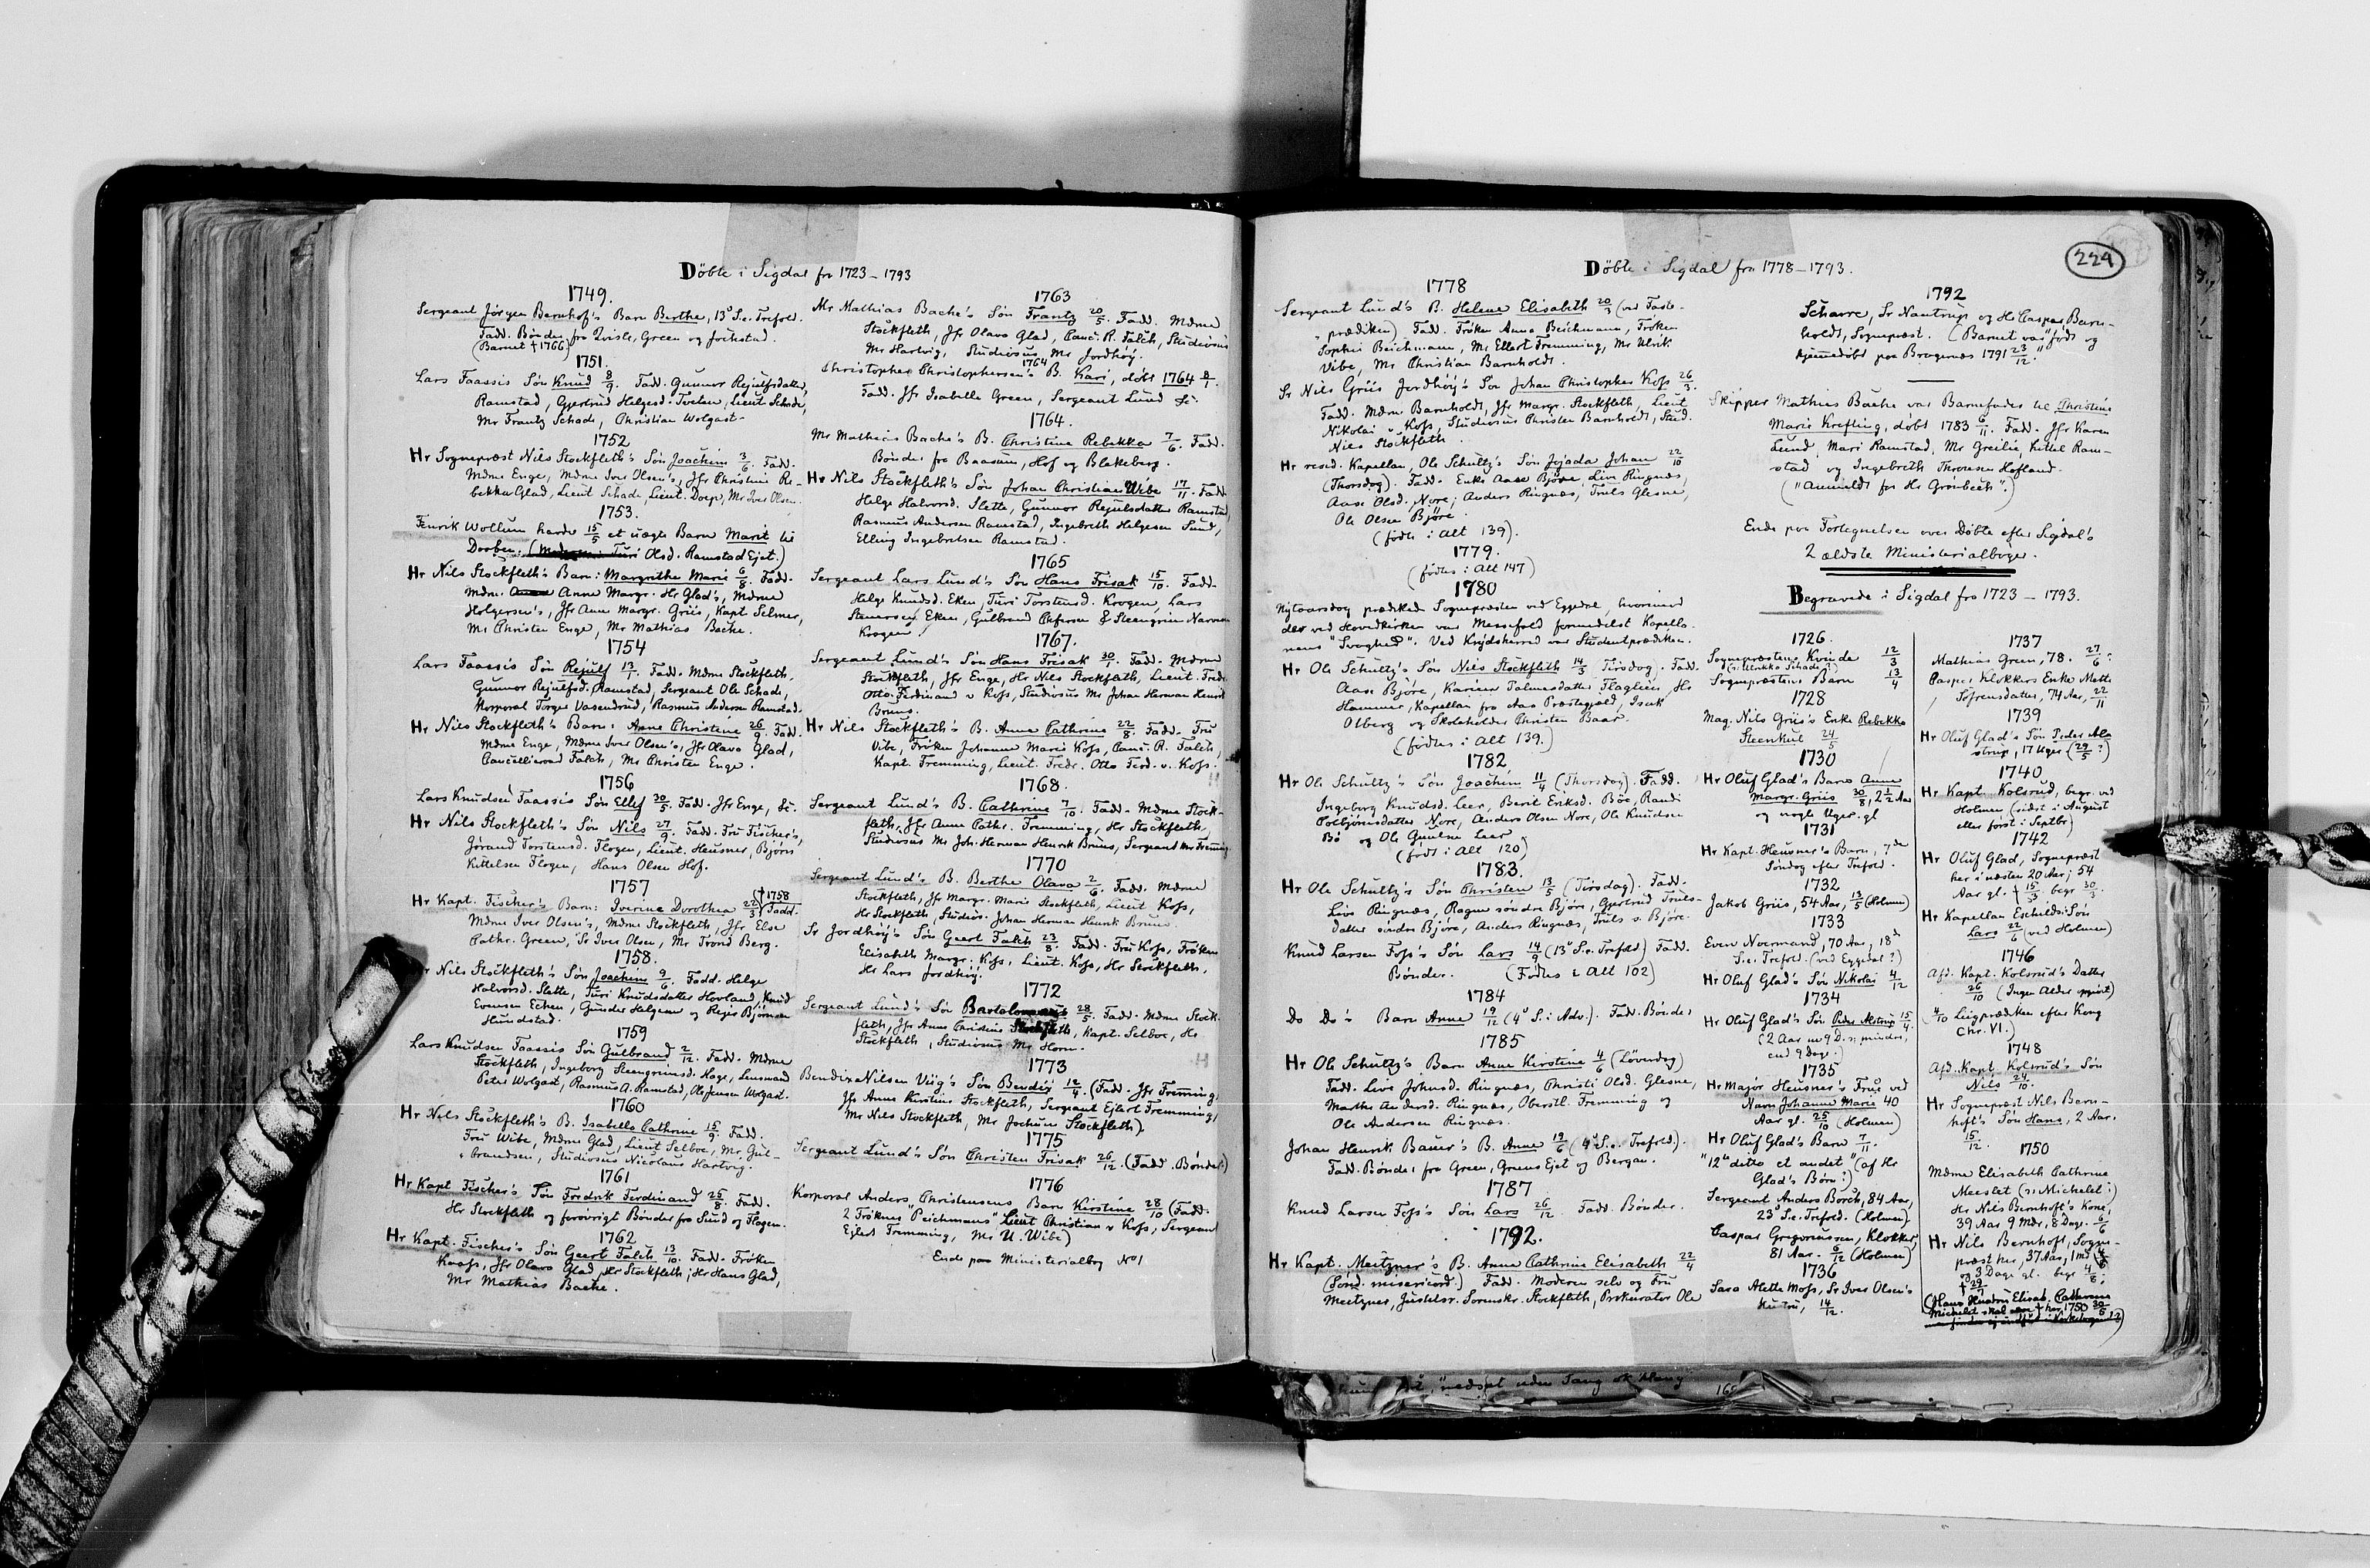 Döbte i Sigdal fra 1723 – 1793
1749.
Sergeant Jörgen Bernhof's Barn Berthe, 13de S. e. Trefold.
Fadd. Bönder fra Kvisle, Green og Jockstad.
(Barnet † 1766)
1751.
Lars Faassis Sön Knud 8/9. Fadd. Gunnor Rejulfsdatter
Ramstad, Gjertrud Helgesd. Tvelen, Lieut. Schade,
Mr Frantz Schade, Christian Wolgast.
1752
Hr Sognepræst Nils Stockfleth's Sön Joachim 3/6. Fadd.
Mdme Enge, Mdme Iver Olsen's, Jfr Christine Re-
bekka Glad, Lieut Schade, Lieut. Dorp, Mr Iver Olsen.
1753.
Henrik Wollum havde 15/5 et uægte Barn Marit til
Daaben. Turi Olsd. Ramstad Ejet.)
Hr Nils Stockfleth's Barn: Margrethe Marie 6/8. Fadd.
Mdm. Anne Margr. Hr Glad's, Mdme
Holgersen's, Jfr Ann Margr. Griis, Kapt Selmer,
Mr Christen Enge, Mr Mathias Bache.
1754
Lars Faassis Sön Rejulf 13/1. Fadd. Mdme Stockfleth,
Gunnor Rejulfsd. Ramstad, Sergeant Ole Schade,
Korporal Torger Vasendrud, Rasmus Andersen Ramstad.
Hr Nils Stockfleth's Barn: Anne Christine 26/9. Fadd.
Mdme Enge, Mdme Iver Olsen's, Jfr Olava Glad,
Cancelliraad Falch, Mr Christen Enge.
1756
Lars Knudsen Faassis Sön Ellef 30/5. Fadd. Jfr Enge, &c.
Hr Nils Stockfleth's Sön Nils 27/9. Fadd. Fru Fischer's,
Jörand Torstensd. Flogen, Lieut. Heusner, Björn
Kittelsen Flogen, Hans Olsen Hof.
1757
Hr Kapt. Fischer's Barn: Iverine Dorothea 22/3 († 1758) Fadd.
Mdme Iver Olsen's, Mdme Stockfleth, Jfr Else
Cathr. Green, Sr Iver Olsen, Mr Trond Berg.
1758.
Nils Stockfleth's Sön Joachim 9/6. Fadd. Helge
Halvorsd. Slette, Turi Knudsdatter Hovland, Knud
Evensen Echen, Gunder Helgesen og Rejer Björnsen
Hundstad.
1759
Lars Knudsen Faassis Sön Gulbrand 2/12. Fadd. Mdme
Stockfleth, Ingeborg Steengrimsd. Hage, Lensmand
Peter Wolgast, Rasmus A. Ramstad, Ole Jensen Wolgast.
1760
Hr Nils Stockfleth's B. Isabella Cathrine 15/9. Fadd.
Fru Wibe, Mdme Glad, Lieut Selboe, Mr. Gul-
brandsen, Studiosus Nicolaus Hartvig.
1761
Hr Kapt Fischer's Sön Fredrik Ferdinand 25/8. Fadd.
Hr Stockfleth og forövrigt Bönder fra Sund og Flagen.
1762
Hr Kapt. Fischer's Sön Geert Falch 13/10. Fadd. Fröken
Koofs, Jfr Olava Glad, Hr Stockfleth, Hr Hans Glad,
Mr Mathias Bache.
1763
Mr Mathias Bache's Sön Frantz 20/5. Fadd. Mdme
Stockfleth, Jfr Olava Glad, Canc. R. Falch, Studiosus
Mr Hartvig, Studiosus Mr Jordhöy.
1764
Christopher Christophersen's B. Kari, döbt 1764 8/1.
Fadd. Jfr Isabella Green, Sergeant Lund &c.
1764.
Mr Mathias Bache's B. Christine Rebekka 7/6. Fadd.
Bönder fra Baasum, Hof og Blakeberg.
Hr Nils Stockfleth's Sön Johan Christian Wibe 17/11. Fadd.
Helge Halvorsd. Slette, Gunnor Rejulsdatter Ramstad,
Rasmus Andersen Ramstad, Ingebreth Helgesen Sund,
Elling Ingebretsen Ramstad.
1765
Sergeant Lars Lund's Sön Hans Frisak 15/10. Fadd.
Helge Knudsd. Eken, Turi Torstensd. Krogen, Lars
Steenersen Eken, Gulbrand Pedersen & Steengrim Narvesen
Krogen
1767.
Sergeant Lund's Sön Hans Frisak 30/1. Fadd. Mdme
Stockfleth, Jfr Enge, Hr Nils Stockfleth, Lieut. Fredr
Otto Ferdinand v Kofs, Studiosus Mr Johan Herman Henrik
Bruns.
Hr Nils Stockfleth's B. Anna Cathrine 22/8. Fadd. Fru
Vibe, Fröken Johanne Marie Kofs, Canc. R. Falch,
Kapt. Fremming, Lieut. Fredr. Otto Ferd. v. Kofs.
1768.
Sergeant Lund's B. Cathrine 7/10. Fadd. Mdme Stock-
fleth, Jfr Anne Cathr. Fremming, Hr Stockfleth,
Studiosus Mr Joh. Herman Henrik Bruns, Sergeant Mr Fremming
1770
Sergeant Lund's B. Berthe Olava 2/6. Fadd. Mdme
Stockfleth, Jfr Margr. Marie Stockfleth, Lieut Kofs,
Hr Stockfleth, Studios. Johan Herman Henrik Bruns.
Sr Jordhöy's Sön Geert Falch 23/8. Fadd. Fru Kofs, Fröken
Elisabeth Margr. Kofs, Lieut. Kofs, Hr Stockfleth,
Hr Lars Jordhöy.
1772
Sergeant Lund's Sön Bartolomæus 28/5. Fadd. Mdme Stock-
fleth, Jfr Anne Christine Stockfleth, Kapt. Selboe, Hr
Stockfleth, Studiosus Mr Horn.
1773
Bendix Nilsen Viig's Sön Bendix 12/4. (Fadd. Jfr Fremming,
Jfr Anne Kirstine Stockfleth, Sergeant Ejlert Fremming,
Mr Nils Stockfleth, Mr Jochum Stockfleth)
1775
Sergeant Lund's Sön Christen Frisak 26/12. (Fadd. Bönder)
1776
Korporal Anders Christensens Barn Kirstine 28/10 (Fadd.
2 Fröknes "Peichmans" Lieut Christian v Kofs, Sergeant
Eglert Fremming, Mr U. Wibe)
Ende paa Ministerialbog No 1
Döbte i Sigdal fra 1778 – 1793.
224
1778
Sergeant Lund's B. Helene Elisabeth 20/3 (ved Faste-
prædiken) Fadd. Fröken Anna Beichmann, Fröken
Sophie Beichmann, Mr Ellert Fremming, Mr Ulrik
Vibe, Mr Christian Barnholdt.
Sr Nils Griis Jordhöy's Sön Johan Christopher Kofs 26/3.
Fadd. Mdme Barnholdt, Jfr Margr. Stockfleth, Lieut
Nikolai v Kofs, Studiosus Christen Barnholdt, Stud.
Nils Stockfleth.
Hr resid. Kapellan, Ole Schultz's Sön Jojada Johan 22/10
(Thorsdag). Fadd. Enke Aase Björe, Live Ringnæs,
Aase Olsd. Nore, Anders Ringnæs, Truls Glesne,
Ole Olsen Björe.
(födte i Alt 139).
1779.
(födtes i Alt 147)
1780
Nytaarsdag prædiked Sognepræsten ved Eggedal, hvorimod
der ved Hovedkirken var Messefald formedelst Kapella-
nens "Svaghed". Ved Krydsherred var Studentprædiken.
Hr Ole Schultz's Sön Nils Stockfleth 14/3 Tirsdag. Fadd.
Aase Björe, Karien Tolmesdatter Flaglien, Hr
Hammer, Kapellan fra Aas Præstegjæld, Isak
Olberg og Skoleholder Christen Baar.
(födtes i Alt 139.)
1782
Hr Ole Schultz's Sön Joachim 11/4 (Thorsdag). Fadd.
Ingeborg Knudsd. Leer, Berit Eriksd. Böe, Randi
Torbjörnsdatter Nore, Anders Olsen Nore, Ole Knudsen
Bö og Ole Gulsen Leer
(födt i Alt 120)
1783.
Hr Ole Schultz's Sön Christen 13/5 (Tirsdag). Fadd.
Live Ringnæs, Ragne söndre Björe, Gjertrud Truls-
datter söndre Björe, Anders Ringnæs, Truls s. Björe.
Knud Larsen Fofs's Sön Lars 14/9 (13de S. e. Trefold) Fadd.
Bönder. (Födtes i Alt 102)
1784
Do Do's Barn Anne 19/12 (4de S. i Adv.). Fadd. Bönder
1785
Hr Ole Schultz's Barn Anne Kirstine 4/6 (Löverdag)
Fadd. Live Johnsd. Ringnæs, Christi Olsd. Glesne,
Marthe Andersd. Ringnæs, Oberstl. Fremming og
Ole Andersen Ringnæs.
Johan Henrik Bauer's B. Anne 19/6 (4de S. e. Trefold.).
Fadd. Bönder fra Green, Greens Ejet og Bergan.
1787
Knud Larsen Fofs's Sön Lars 26/12. Fadd. Bönder.
1792.
Hr Kapt. Meitzner's B. Anne Cathrine Elisabeth 22/4
(Sönd. misericord.) Fadd. Moderen selv og Fru
Meitzner, Justitsr. Sorenskr. Stockfleth, Prokurator Ole
1792
Scharre, Sr Nautrup og Hr Caspar Barn-
holdt, Sognepræst. (Barnet var "födt og
hjemmedöbt paa Bragernæs 1791 23/12."
Skipper Mathias Bache var Barnefader til Christine
Marie Krefting, döbt 1783 6/11. Fadd. Jfr Karen
Lund, Mari Ramstad, Mr Greilie, Kittel Ram-
stad og Ingebreth Thoresen Hofland.
("Anmeldt for Hr Grönbech".)
Ende paa Fortegnelsen over Döbte efter Sigdal's
2 ældste Ministerialböger.
Begravede i Sigdal fra 1723 – 1793.
1726.
Sognepræstens Kvinde 12/3
(: Ulrikka Schade?)
Sognepræstens Barn 13/4
1728
Mag. Nils Griis's Enke Rebekka
Steenkul 24/5
1730
Hr Oluf Glad's Barn Anne
Margr. Griis 30/8, 2 1/2 Aar
og nogle Uger gl.
1731
Hr Kapt. Heusner's Barn, 7de
Söndag efter Trefold.
1732
Jakob Griis, 54 Aar, 13/5 (Holmen)
1733
Even Noermand, 70 Aar, 18de
S. e. Trefold. (ved Eggedal?)
Hr Oluf Glad's Sön Nikolai 4/12
1734
Hr Oluf Glad's Sön Peder Alstrup 15/4.
(2 Aar mindre,
end 9 Dage.)
1735
Hr Major Heusner's Frue ved
Navn Johanne Marie 40
Aar gl. 25/10 (Holmen)
Hr Oluf Glad's Barn 7/11.
"12te ditto et andet" (af Hr
Glad's Börn?)
Sergeant Anders Borch, 84 Aar,
23de S. e. Trefold. (Holmen)
Caspar Gregoriussen, Klokker,
81 Aar. 6/12 (Holmen)
1736
Sara Alette Mofs, Sr Iver Olsen's
Hustru, 14/12.
1737
Mathias Green, 78. 27/6.
Casper Klokkers Enke Mette
Sörensdatter, 74 Aar, 22/11
1739
Hr Oluf Glad's Sön Peder Als-
strup, 17 Uger (29/5?)
1740
Hr Kapt. Kolsrud, begr. ved
Holmen (sidst i August
eller först i Septbr)
1742
Hr Oluf Glad, Sognepræst
her i næsten 20 Aar; 54
Aar gl. † 15/3 begr 30/3.
Hr Kapellan Eschildss Sön
Lars 22/6 (ved Holmen)
1746
Afd. Kapt. Kolsrud's Datter
26/10 (Ingen Alder opgivet)
(4/10 Liigprædiken efter Kong
Chr. VI.)
1748
Afd. Kapt. Kolsrud's Sön
Nils 24/10.
Hr Sognepræst Nils Bern-
hoft's Sön Hans, 2 Aar.
15/12.
1750
Mdme Elisabeth Cathrine
Meeslet (: Michelet :)
Hr Nils Bernhoft's Kone,
39 Aar 9 Mdr, 8 Dage. 5/6
Hr Nils Bernhoft, Sogne-
præst her, 37 Aar, 1 Md
og 3 Dage gl. begr 4/8;
† 29/7
(Hans Hustru Elisab. Cathrine
Michelet skal være † her 1750 30/5